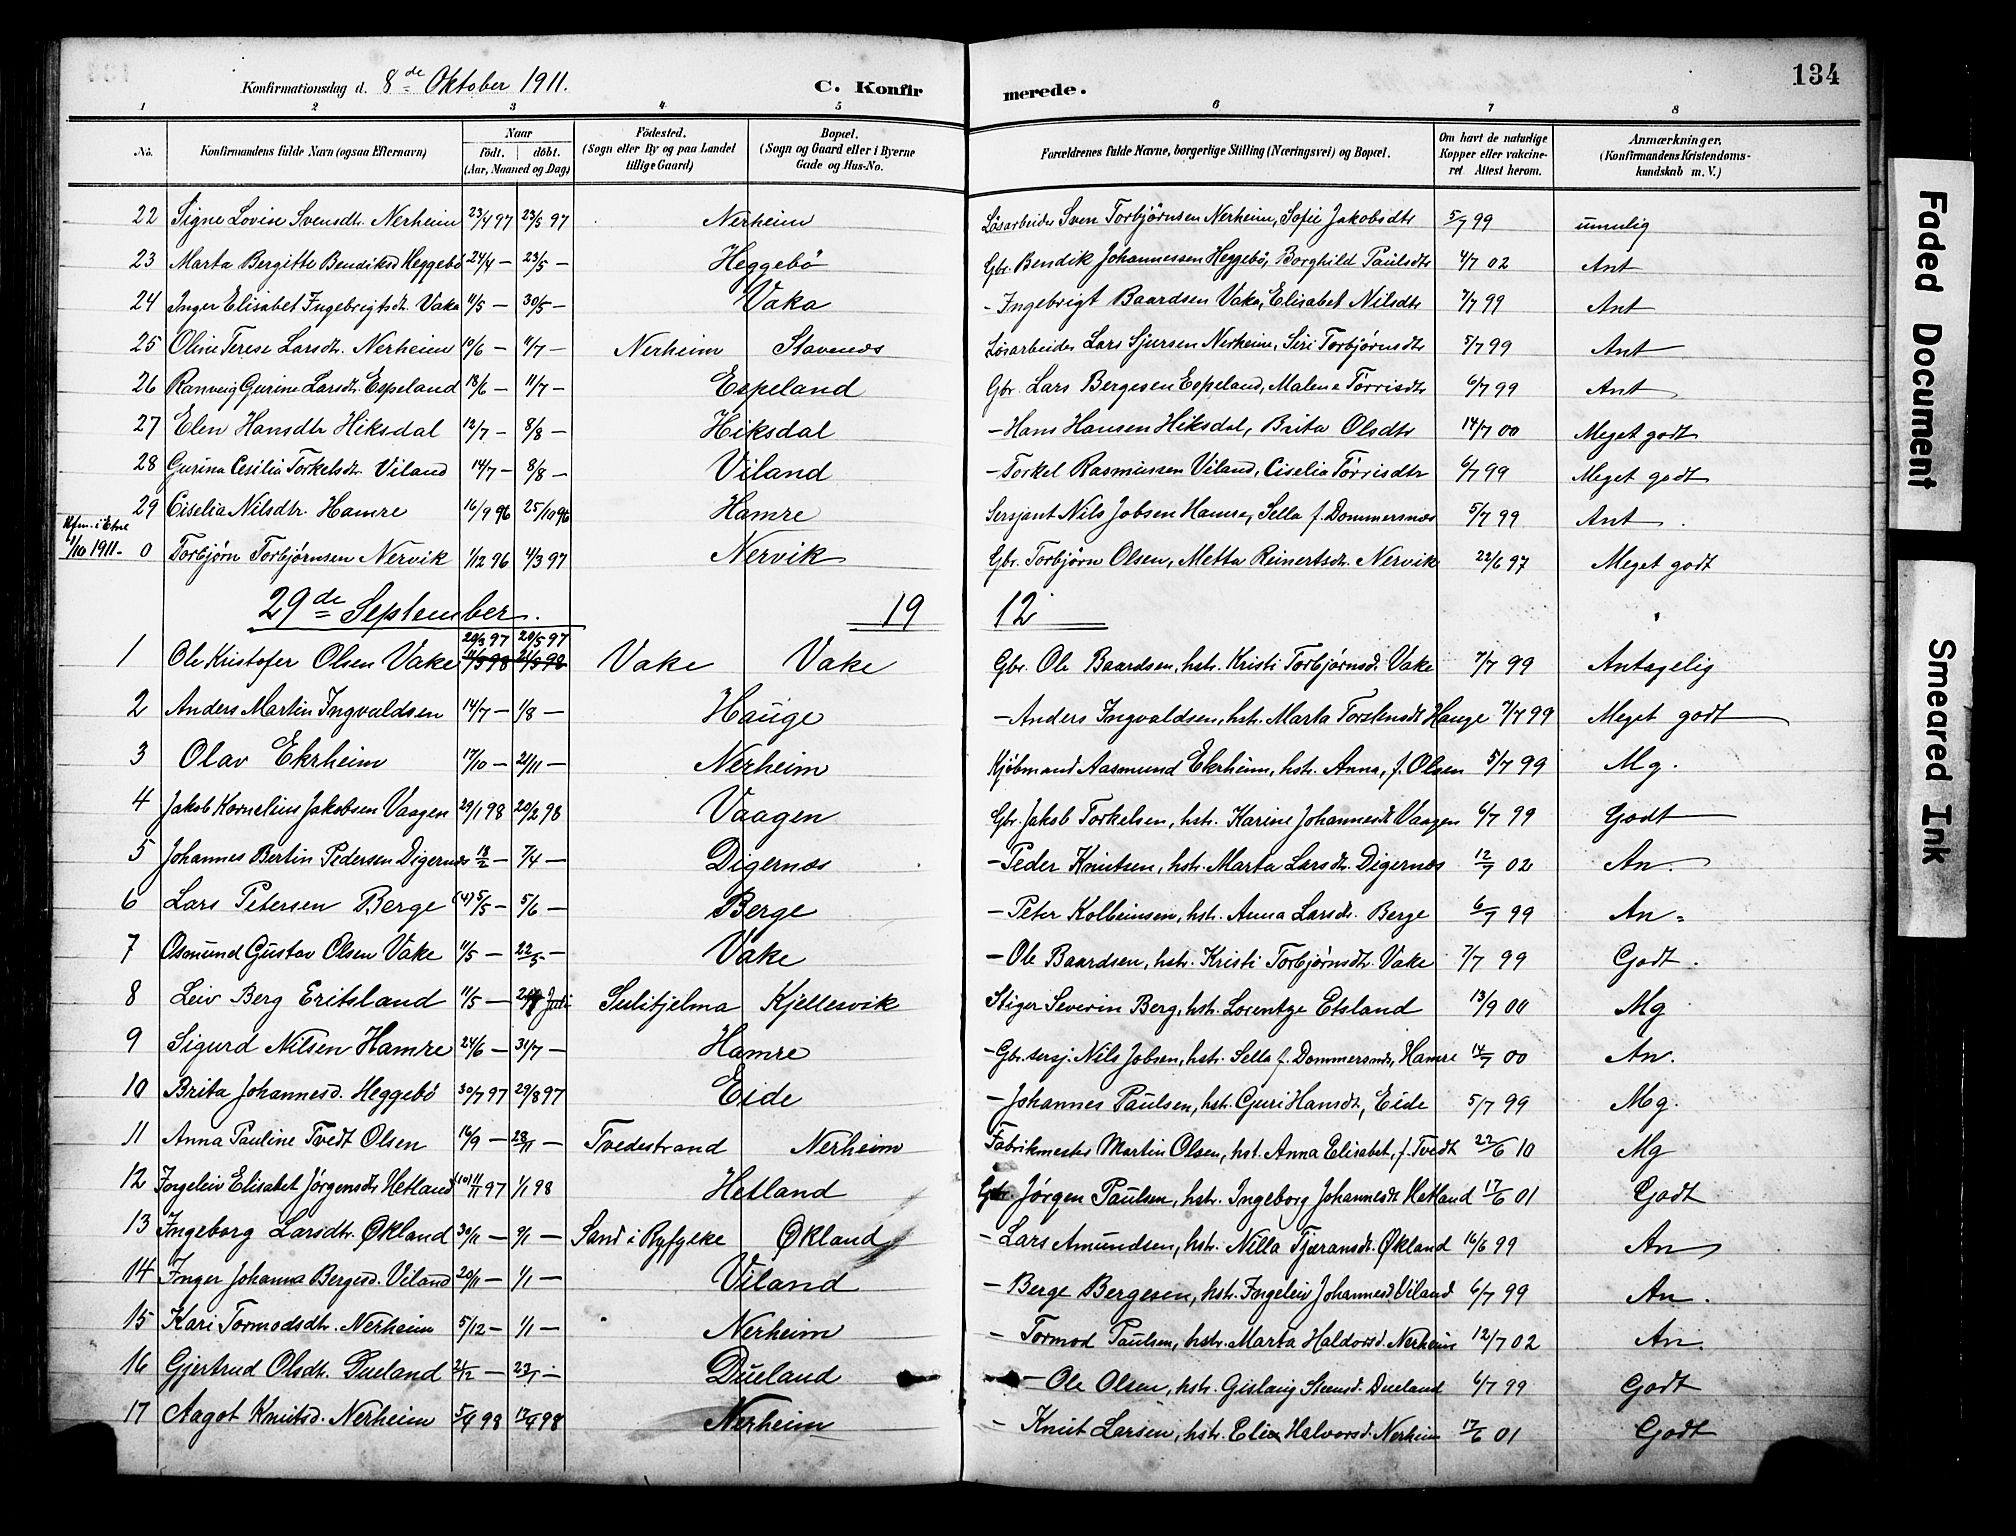 134
Konfirmationsdag d. 8de Oktober 1911.
C. Konfirmerede.
1 2 3 4 5 6 7 8
No. Konfirmandens fulde Navn (ogsaa Efternavn) Naar født. døbt. (Aar, Maaned og Dag) Födested. (Sogn eller By og paa Landet tillige Gaard) Bopæl. (Sogn og Gaard eller i Byerne Gade og Hus-No. Forældrenes fulde Navne, borgerlige Stilling (Næringsvei) og Bopæl. Om havt de naturlige Kopper eller vakcineret Attest herom. Anmærkninger, (Konfirmandens Kristendomskundskab m. V.)
22 Signe Lovise Svensdtr. Nerheim 23/4 97 23/5 97 Nerheim Løsarbeider Sven Torbjørnsen Nerheim, Sofie Jakobsdtr 5/7 99 umulig
23 Marta Bergitte Bendiksd Heggebø 24/4 — 23/5 — Heggebø Gbr. Bendik Johannessen Heggebø, Borghild Paulsdtr 4/7 02 Ant
24 Inger Elisabet Ingebrigtsdr. Vaka 11/5 — 30/5 — Vaka - Ingebrigt Baardsen Vaka, Elisabet Nilsdtr 7/7 99 Ant
25 Oline Terese Larsdtr. Nerheim 10/6 — 4/7 — Nerheim Stavenes Løsarbeider Lars Sjursen Nerheim, Siri Torbjørnsdtr 5/7 99 Ant
26 Ranveig Gurine Larsdtr. Espeland 18/6 — 11/7 — Espeland Gbr. Lars Bergesen Espeland, Malene Tørrisdtr 6/7 99 Ant
27 Elen Hansdtr Hiksdal 12/7 — 8/8 — Hiksdal - Hans Hansen Hiksdal, Brita Olsdtr 14/7 00 Meget godt
28 Gurina Cesilia Torkelsdtr. Viland 14/7 — 8/8 — Viland - Torkel Rasmussen Viland, Ciselia Tørrisdtr 6/7 99 Meget godt
29 Ciselia Nilsdtr. Hamre 16/9 96 25/10 96 Hamre Sersjant Nils Jobsen Hamre, Sella f. Dommersnes 5/7 99 Ant
Kfm. i Etne 1/10 1911- 0 Torbjørn Torbjørnsen Nervik 1/12 96 4/3 97 Nervik Gbr. Torbjørn Olsen, Metta Reinertsdr. Nervik 22/6 97 Meget godt
29de September. 19 12
20/3 97 20/5 97
1 Ole Kristofer Olsen Vake Vake Vake Gbr. Ole Baardsen, hstr. Kristi Torbjørnsd. Vake 7/7 99 Antagelig
2 Anders Martin Ingvaldsen 14/7 — 1/8 — Hauge - Anders Ingvaldsen, hstr. Marta Torstensdt Hauge 7/7 99 Meget godt
3 Olav Ekrheim 17/10 — 21/11 — Nerheim Kjøbmand Aasmund Ekrheim, hstr. Anna, f. Olsen 5/7 99 Mg.
4 Jakob Kornelius Jakobsen Vaagen 29/1 98 20/2 98 Vaagen Gbr. Jakob Torkelsen, hstr. Karine Johannesdt Vaagen 6/7 99 Godt
5 Johannes Bertin Pedersen Digernes 18/2 — 7/4 — Digernes - Peder Knutsen, hstr. Marta Larsdtr. Digernes 12/7 02 An.
6 Lars Petersen Berge (4) 5/5 — 5/6 — Berge - Peter Kolbeinsen, hstr. Anna Larsdr. Berge 6/7 99 An.
7 Osmund Gustav Olsen Vake 11/5 — 22/5 — Vake - Ole Baardsen, hstr. Kristi Torbjørnsdtr. Vake 7/7 99 Godt.
8 Leiv Berg Eritsland 11/5 — Juli Sulitjelma Kjellesvik Stiger Severin Berg, hstr. Losentze Etsland 13/9 00 Mg
9 Sigurd Nilsen Hamre 24/6 — 31/7 — Hamre - Gbr. sersj. Nils Jobsen, hstr. Sella f. Dommersnes, Hamre 14/7 00 An.
10 Brita Johannesd. Heggebø 30/7 97 29/8 97 Eide - Johannes Paulsen, hstr. Guri Hansdt, Eide 5/7 99 Mg.
11 Anna Pauline Tvedt Olsen 16/9 — 28/11 — Tvedestrand Nerheim Fabrikmester Martin Olsen, hst. Anna Elisabet, f. Tvedt 22/6 10 Mg
12 Ingeleiv Elisabet Jørgensdtr Hetland (10) 11/11 97 1/1 98 Hetland Gbr. Jørgen Paulsen, hstr. Ingeborg Johannesdt Hetland 17/6 01 Godt
13 Ingeborg Larsdtr. Økland 30/11 — 9/1 — Sand i Ryfylke Økland - Lars Amundsen, hstr. Nilla Tjæransdt. Økland 16/6 99 An
14 Inger Johanna Bergesd. Viland 20/11 — 1/1 — Viland - Berge Bergesen, hstr. Ingeleiv Johannesd Viland 6/7 99 An.
15 Kari Tormodsdtr. Nerheim 5/12 — 1/1 — Nerheim - Tormod Paulsen, hstr. Marta Haldorsd. Nerheim 12/7 02 An.
16 Gjertrud Olsdtr. Dueland 2/12 — 23/1 — Dueland - Ole Olsen, hstr. Gislaug Steensd. Dueland 6/7 99 Godt
17 Aagot Knutsd. Nerheim 5/4 98 17/4 98 Nerheim - Knut Larsen, hstr. Elin Halvorsd. Nerheim 17/6 01 Godt
Faded Document
Smeared Ink